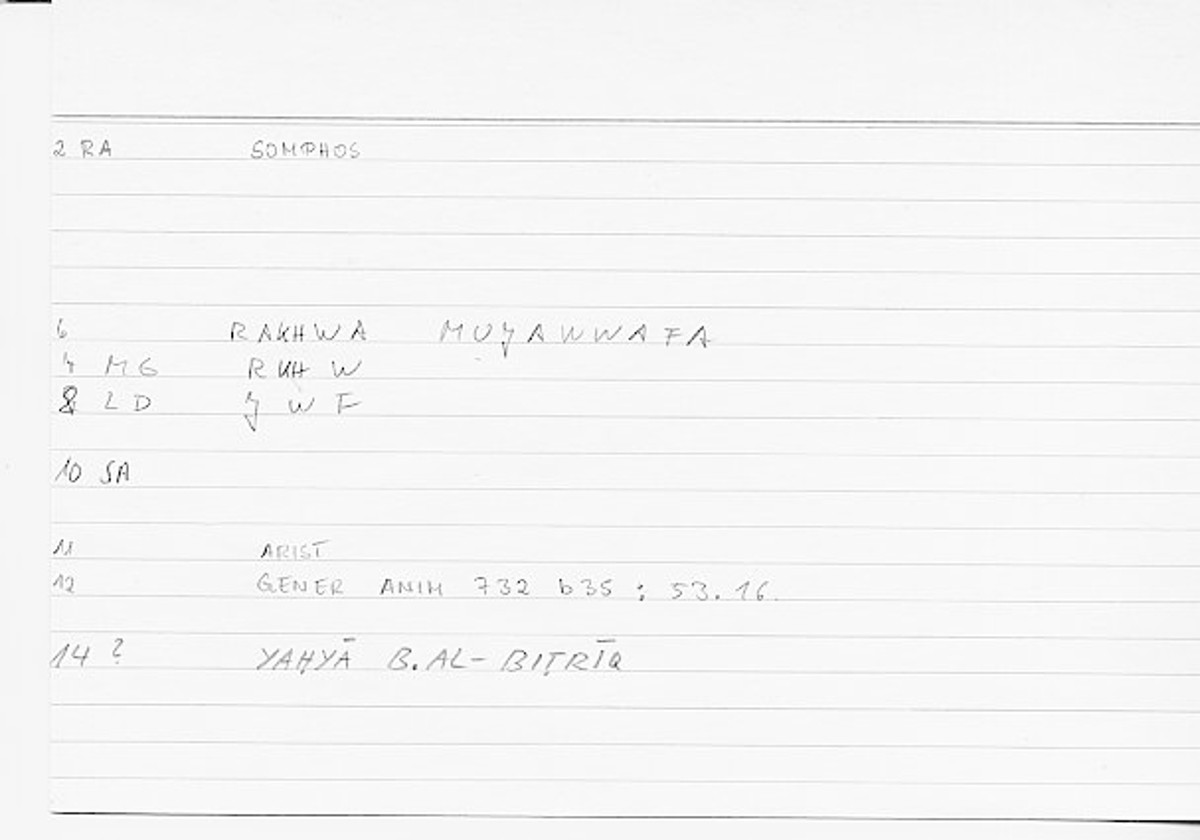 2 RA SOMPHOS
6 RAKHWA MUJAWWAFA
4 MG RKH W
8 LD J W F
10 SA
11 ARIST
12 GENER ANIM 732 b35 : 53.16.
14 ? YAḤYĀ B.AL-BIṬRĪQ